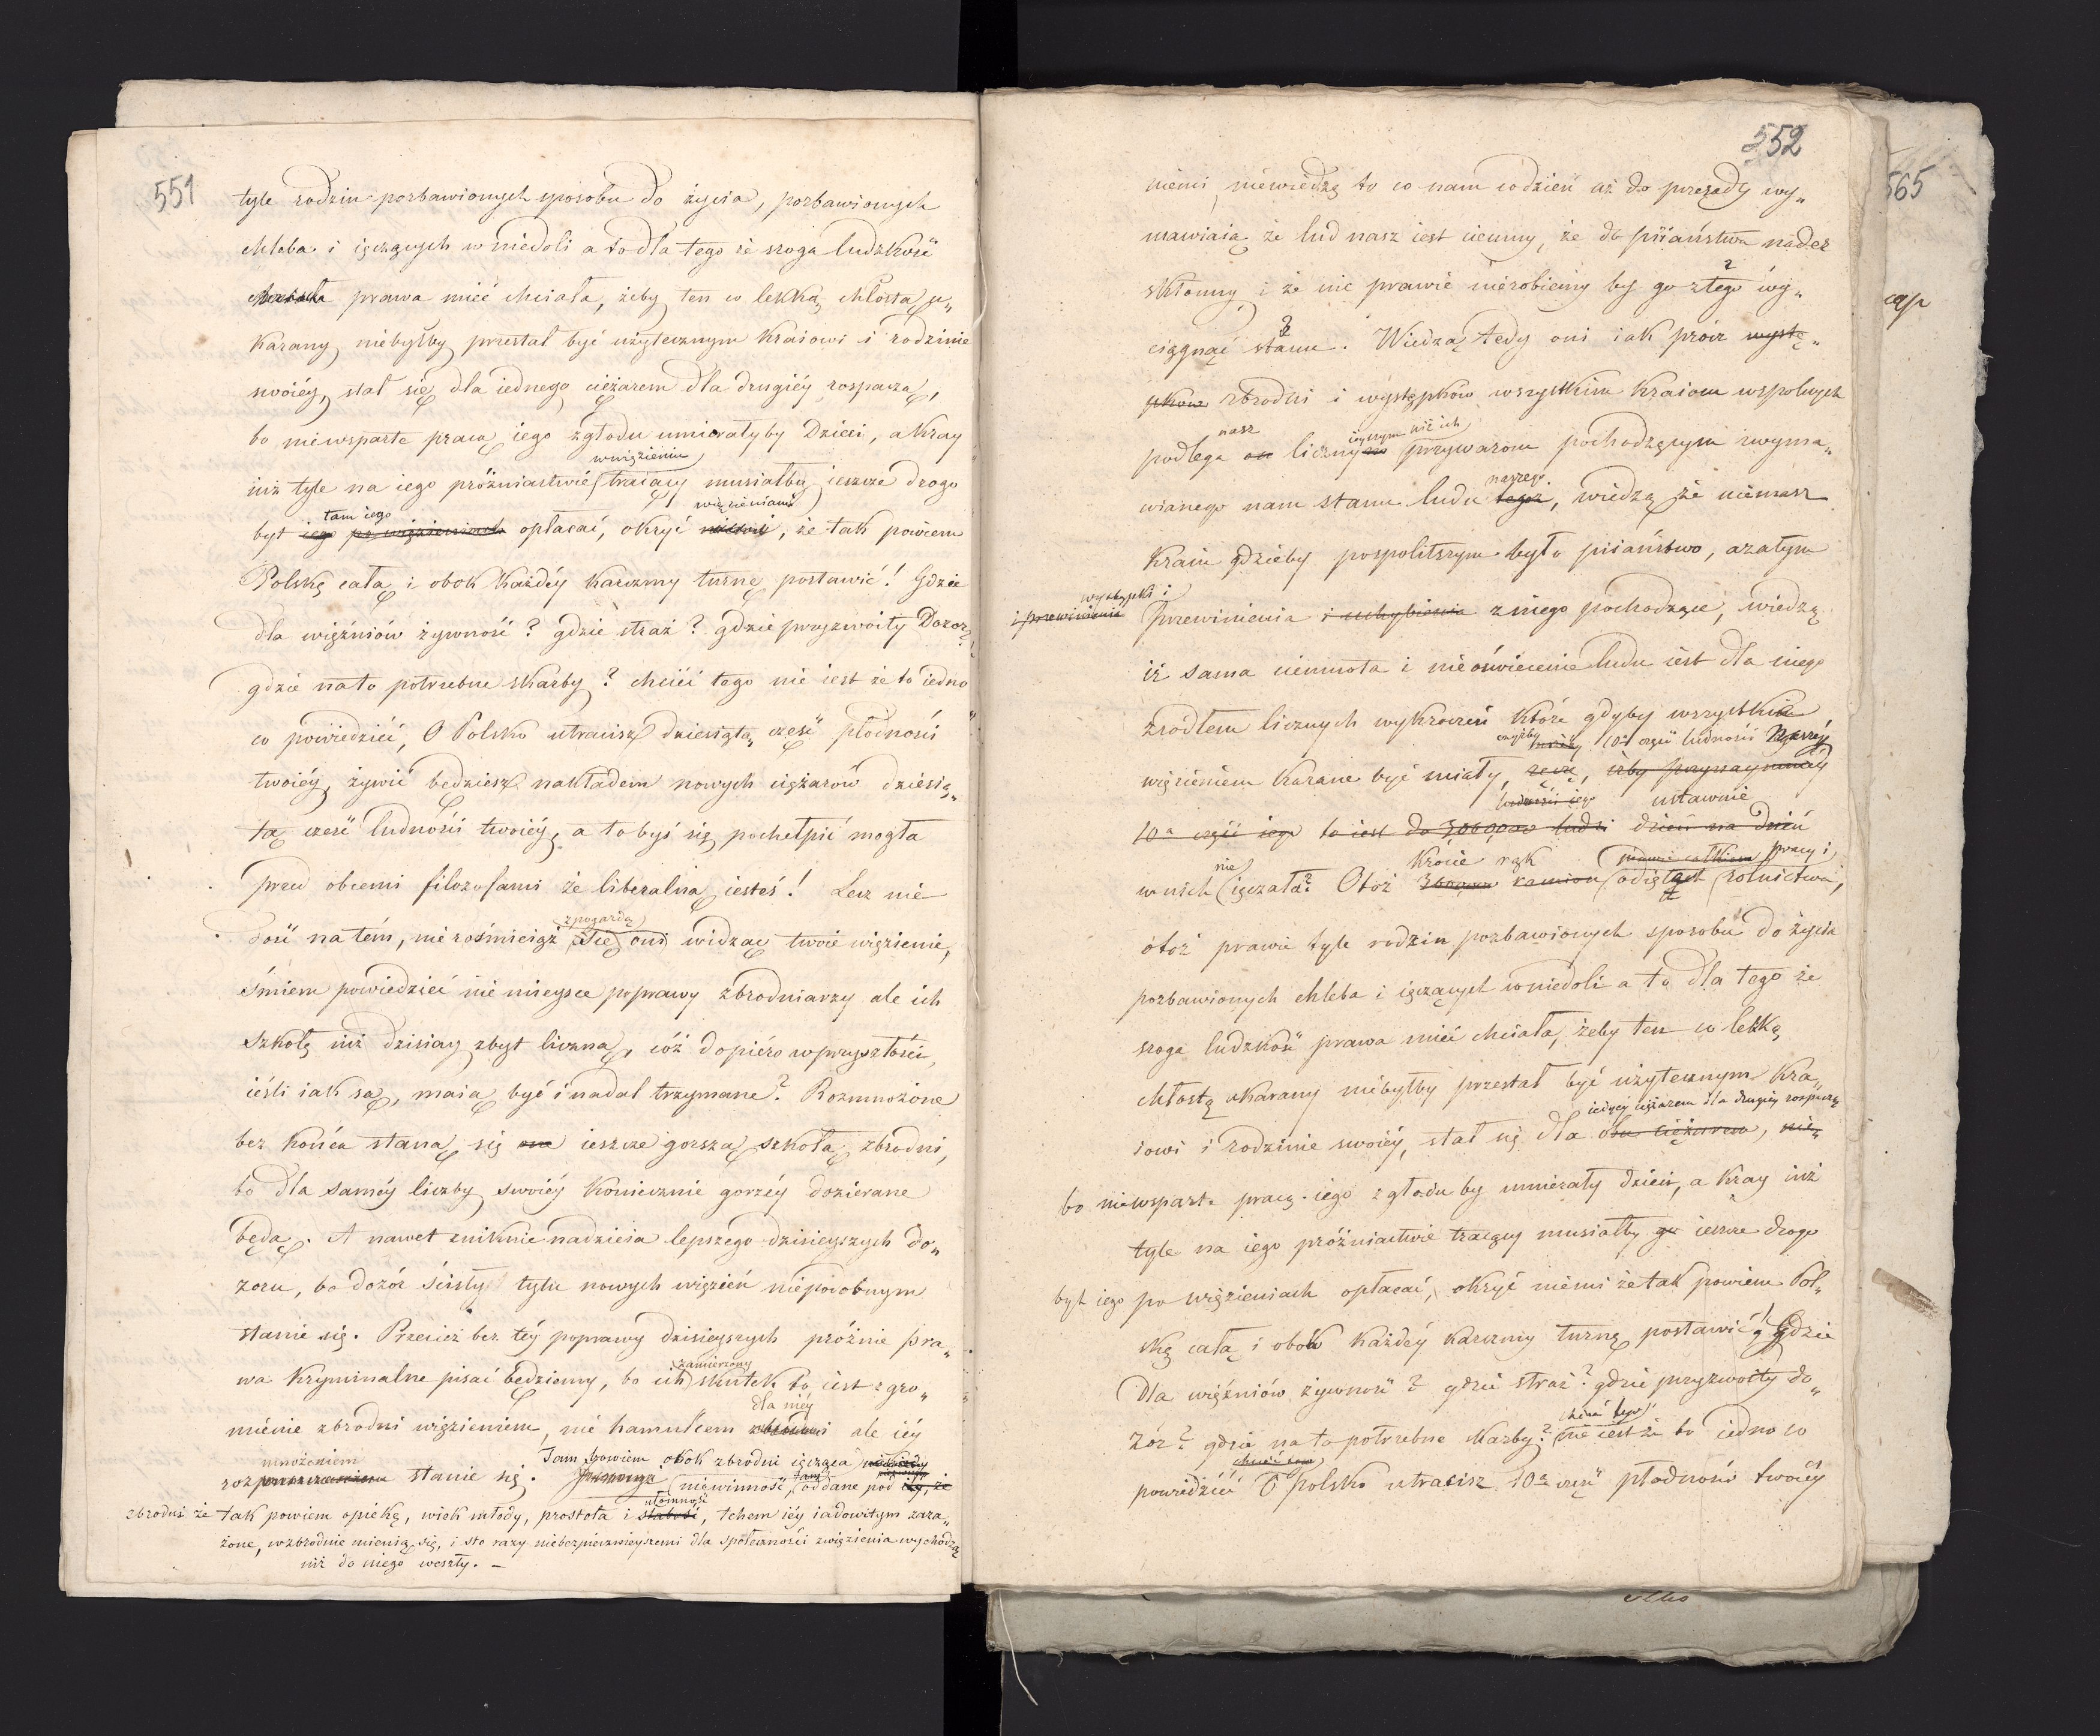 551
tyle rodzin pozbawionych sposobu do życia, pozbawionych
chleba i ięczących w niedoli a to dla tego że sroga ludzkość
prawa mieć chciała, żeby ten co lekką chłostą u„
karany niebyłby przestał być użytecznym kraiowi i rodzinie
swoiéy, stał się dla iednego ciężarem dla drugiéy rospaczą,
bo niewsparte pracą iego z głodu umierałyby Dzieci, a Kray
w więzieniu
iuż tyle na iego próżniactwie tracący musiałby ieszcze drogo
tam iego więzieniami
byt iego po więzieniach opłacać, okryć niemi, że tak powiem
Polskę całą i obok każdéy karczmy turmę postawić! Gdzie
dla więźniów żywność? gdzie straż? gdzie przyzwoity Dozór?
gdzie na to potrzebne skarby? chcieć tego nie iest że to iedno
co powiedzieć, O Polsko utracisz dziesiątą część płodności
twoiéy, żywić będziesz nakładem nowych ciężarów dziesią„
tą część ludności twoiéy, a to byś się pochełpić mogła
przed obcemi filozofami że liberalną iesteś! Lecz nie
z pogardą
dość na tém, nie rośmieiąż się oni widząc twoie więzienie,
śmiem powiedzieć nie mieysce poprawy zbrodniarzy ale ich
szkołę iuż dzisiay zbyt liczną, cóż dopiéro w przyszłości,
ieśli iak są, maią być i nadal trzymane? Rozmnożone
bez końca staną się one ieszcze gorszą szkołą zbrodni,
bo dla saméy liczby swoiéy koniecznie gorzéy dozierane
będą. A nawet zniknie nadzieia lepszego dzisieyszych do„
zoru, bo dozór ścisły tylu nowych więzień niepodobnym
stanie się. Przecież bez téy poprawy dzisieyszych próżnie pra„
zamierzony
wa kryminalne pisać będziemy, bo ich skutek to iest zgro„
dla niéy
mienie zbrodni więzieniem, nie hamulcem zbrodni ale iéy
mnożeniem Tam bowiem obok zbrodni ięcząca
roz stanie się. niewinność, tam oddane pod iéy, że
ułomność
zbrodni że tak powiem opiekę, wiek młody, prostota i słabość, tchem iéy iadowitym zara„
żone, w zbrodnie mienią się, i sto razy niebezpiecznieyszemi dla społeczności z więzienia wychodzą
niż do niego weszły. –
552
niemi niewiedzą to co nam codzień aż do przesady wy„
mawiaią że lud nasz iest ciemny, że do piiaństwa nader
skłonny i że nic prawie nierobiemy by go z tego wy„
ciągnąć stanu. Wiedzą tedy oni iak prócz wystę„
pków zbrodni i występków wszystkim kraiom wspolnych
nasz inszym niż ich
podlega on liczny przywarom pochodzącym z wyma„
naszego
wianego nam stanu ludu tegoż, wiedzą że niemasz
kraiu gdzieby pospolitszym było piiaństwo, a zatym
występki i
i przewinienia przewinienia i uchybienia z niego pochodzące, wiedzą
iż sama ciemnota i nieoświecenie ludu iest dla niego
zrodłem licznych wykroczeń które gdyby wszystkie
czyżby 10ª część ludności Naszéy
więzieniem karane być miały, ręczę, iżby przynaymniéy
ludności iego ustawnie
10ª część iego to iest do 300,000 ludzi dzień na dzień
nie krocie rąk pracy i
w nich ięczała? Otoż 300,000 ramion odiętych rolnictwu,
otoż prawie tyle rodzin pozbawionych sposobu do życia
pozbawionych chleba i ięczących w niedoli a to dla tego że
sroga ludzkość prawa mieć chciała, żeby ten co lekką
chłostą ukarany niebyłby przestał być użytecznym kra„
iednéy ciężarem dla drugiéy rospaczą
iowi i rodzinie swoiéy, stał się dla obu ciężarem, nie„
bo niewsparte pracą iego z głodu by umierały dzieci, a kray iuż
tyle na iego próżniactwie tracący musiałby go ieszcze drogo
byt iego po więzieniach opłacać, okryć niemi że tak powiem Pol„
skę całą i obok każdéy karczmy turmę postawić! Gdzie
dla więźniów żywność? gdzie straż? gdzie przyzwoity do„
chcieć tego
zór? gdzie na to potrzebne skarby? nie iest że to iedno co
powiedzieć O polsko utracisz 10ª część płodności twoiéy
565